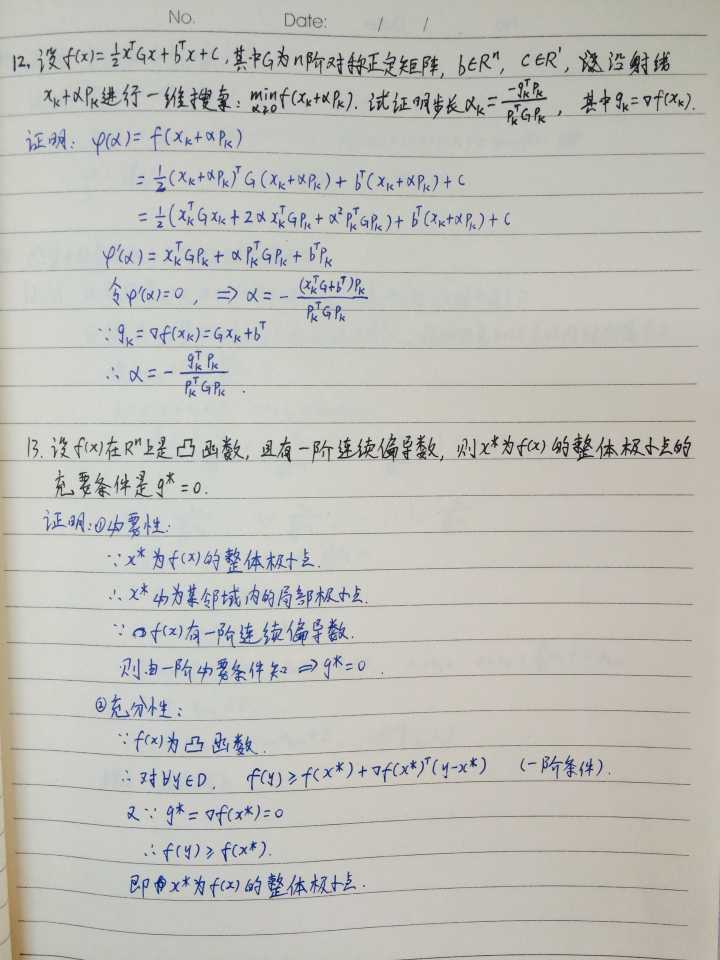 No.
Date: / /
12. 设 f(x)=½xᵀGx+bᵀx+c, 其中G为n阶对称正定矩阵, b∈Rⁿ, c∈R¹, 沿射线
x_k+αP_k进行一维搜索: min_{α≥0} f(x_k+αP_k). 试证明步长 α_k = -g_kᵀP_k / P_kᵀGP_k, 其中 g_k=∇f(x_k).
证明: φ(α) = f(x_k+αP_k)
= ½(x_k+αP_k)ᵀG(x_k+αP_k) + bᵀ(x_k+αP_k)+c
= ½(x_kᵀGx_k + 2αx_kᵀGP_k + α²P_kᵀGP_k) + bᵀ(x_k+αP_k)+c
φ'(α) = x_kᵀGP_k + αP_kᵀGP_k + bᵀP_k
令φ'(α)=0, ⇒ α = - (x_kᵀG+bᵀ)P_k / P_kᵀGP_k
∵ g_k = ∇f(x_k) = Gx_k+bᵀ
∴ α = - g_kᵀP_k / P_kᵀGP_k .
13. 设f(x)在Rⁿ上是凸函数, 且有一阶连续偏导数, 则x*为f(x)的整体极小点的
充要条件是g*=0.
证明:①必要性:
∵ x*为f(x)的整体极小点.
∴ x*必为某邻域内的局部极小点.
∵ f(x)有一阶连续偏导数.
则由一阶必要条件知 ⇒ g*=0 .
②充分性:
∵ f(x)为凸函数.
∴ 对∀y∈D, f(y)≥f(x*)+∇f(x*)ᵀ(y-x*) (一阶条件).
又∵ g*=∇f(x*)=0
∴ f(y)≥f(x*).
即x*为f(x)的整体极小点.